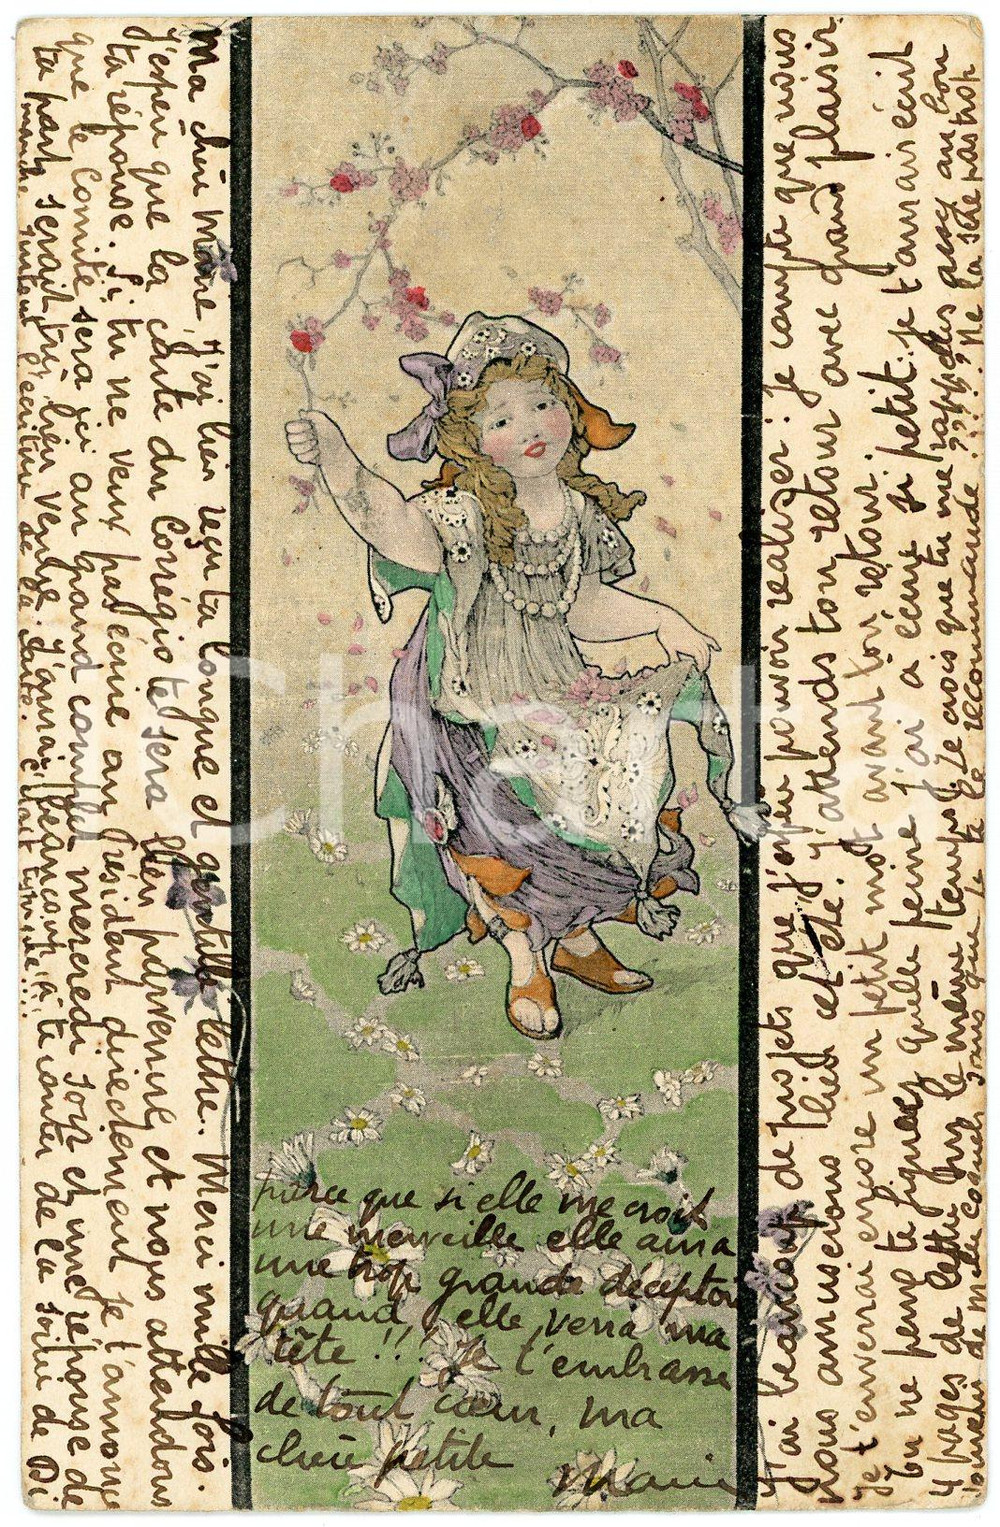 Ma chère Marie, j'ai bien reçu ta longue et gentille lettre. Merci mille fois.
J'espère que la carte du Corrégio te sera bien parvenue et nous attendons
ta réponse. Si tu ne veux pas écrire au Président directement je t'annonce
que le Comité sera ici au grand complet mercredi soir et une réponse de
ta part serait très bien venue. J'aurais beaucoup à te conter de la soirée de Di
manche
J'ai beaucoup de projets que j'espère pouvoir réaliser : je compte que nous
nous amuserons bien cet été. J'attends ton retour avec grand plaisir.
Je t'enverrai encore un petit mot avant ton retour.
Tu ne peux te figurer quelle peine j'ai à écrire si petit : je t'aurais écrit
4 pages de lettre dans le même temps. Je crois que tu me rappelles assez au bon
recommande : Ne la sois pas trop
parce que si elle me croit
une merveille elle aura
une trop grande déception
quand elle verra ma
tête !!! Je t'embrasse
de tout cœur, ma
chère petite
Marie
iCharta